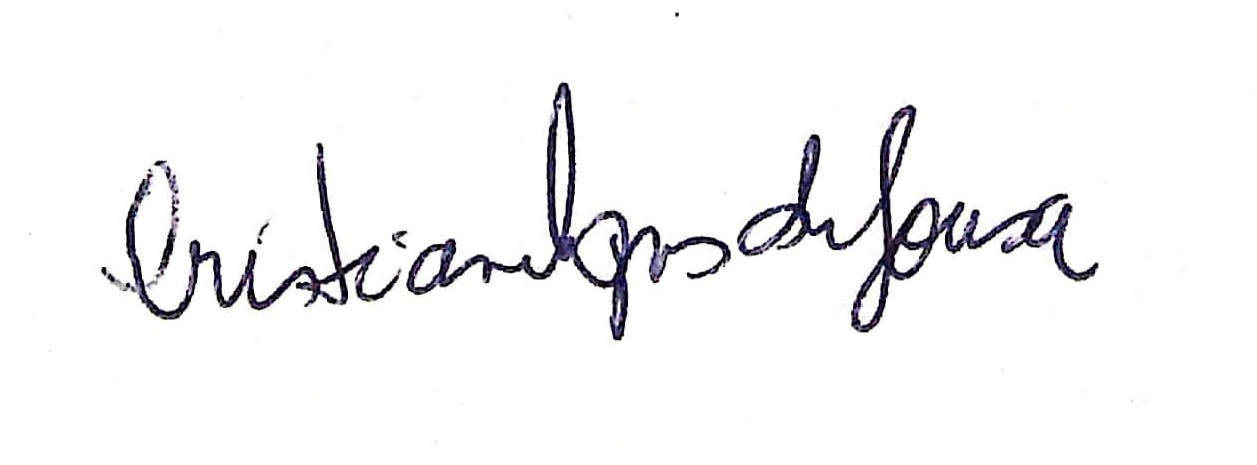 Cristiane Lopes de Sousa